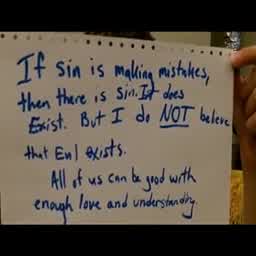 If Sin is making mistakes,
then there is Sin. It does
Exist. But I do NOT beleve
that Evil exists.
All of us can be good with
enough love and understanding.